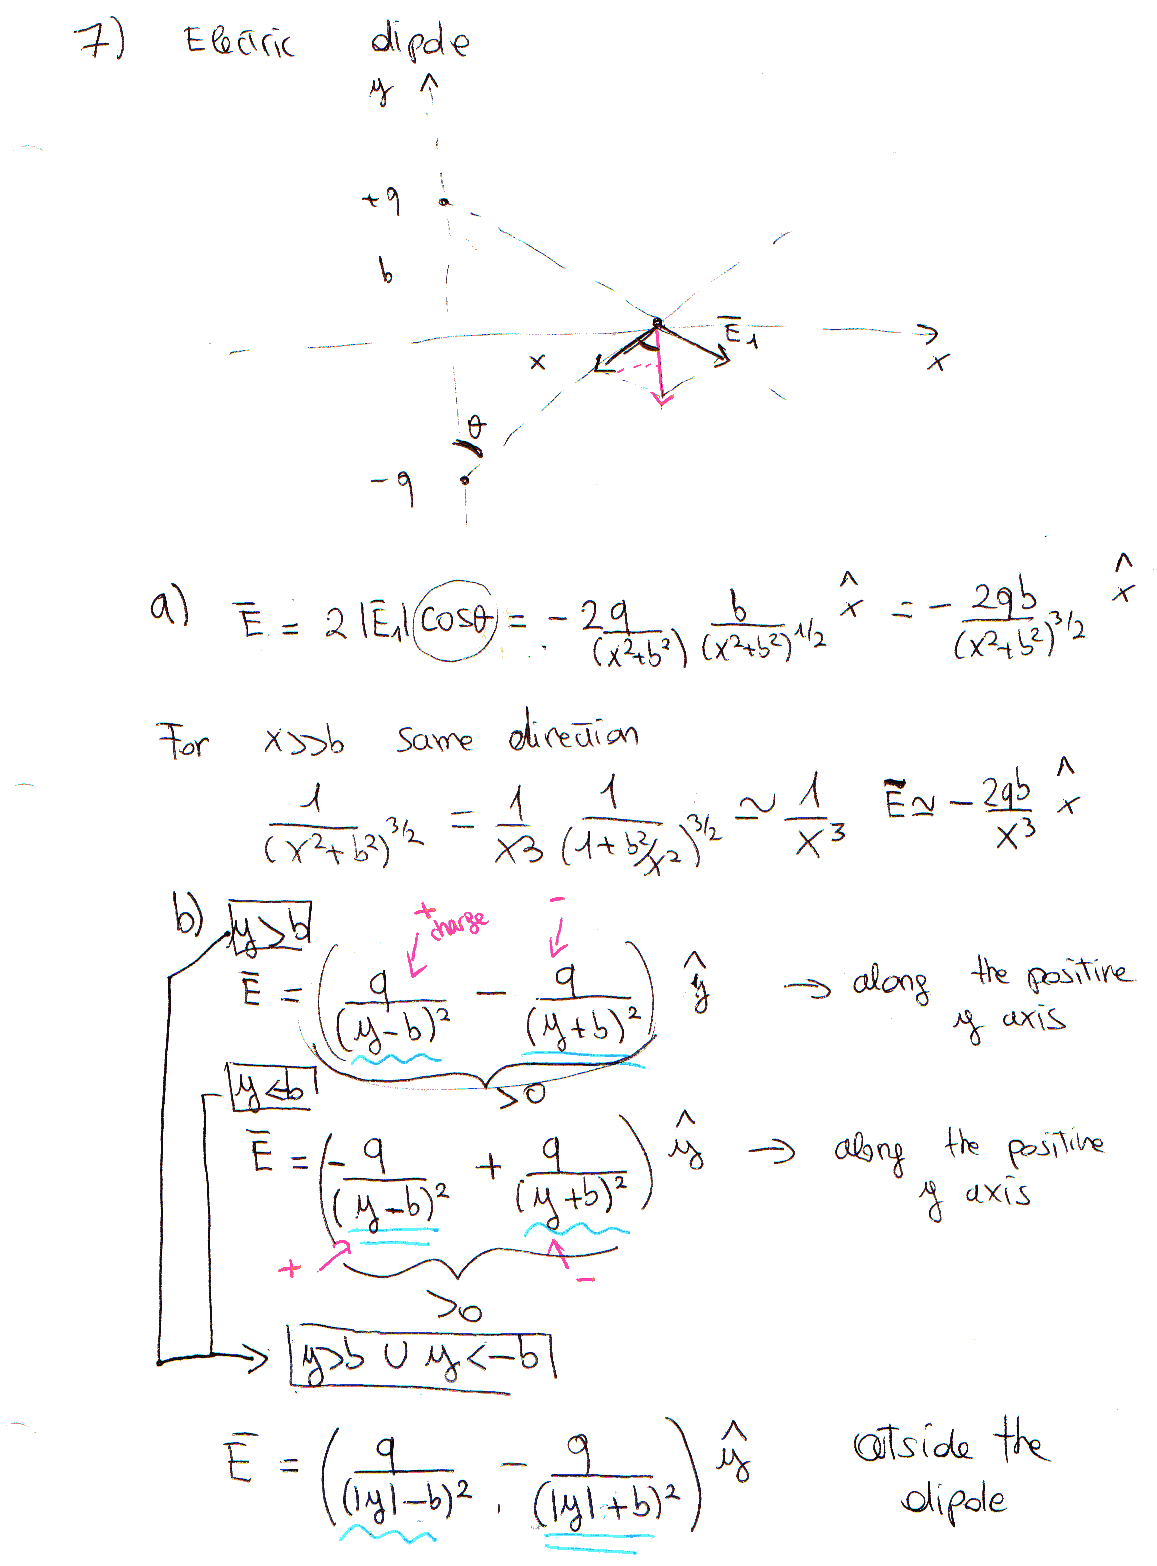 7) Electric dipole
y
+q
b
Ē₁
x
x
θ
-q
a) Ē = 2|Ē₁| cosθ = - 2q/(x²+b²) b/(x²+b²)^1/2 x̂ = - 2qb/(x²+b²)^3/2 x̂
For x>>b same direction
1/(x²+b²)^3/2 = 1/x3 1/(1+b²/x²)^3/2 ≃ 1/x³ Ē ≃ - 2qb/x³ x̂
b) y>b
+ charge
-
Ē = (q/(y-b)² - q/(y+b)²) ŷ → along the positive
y axis
>0
y<b
Ē = (- q/(y-b)² + q/(y+b)²) ŷ → along the positive
y axis
+
-
>0
y>b ∪ y<-b
Ē = (q/(|y|-b)² - q/(|y|+b)²) ŷ otside the
dipole